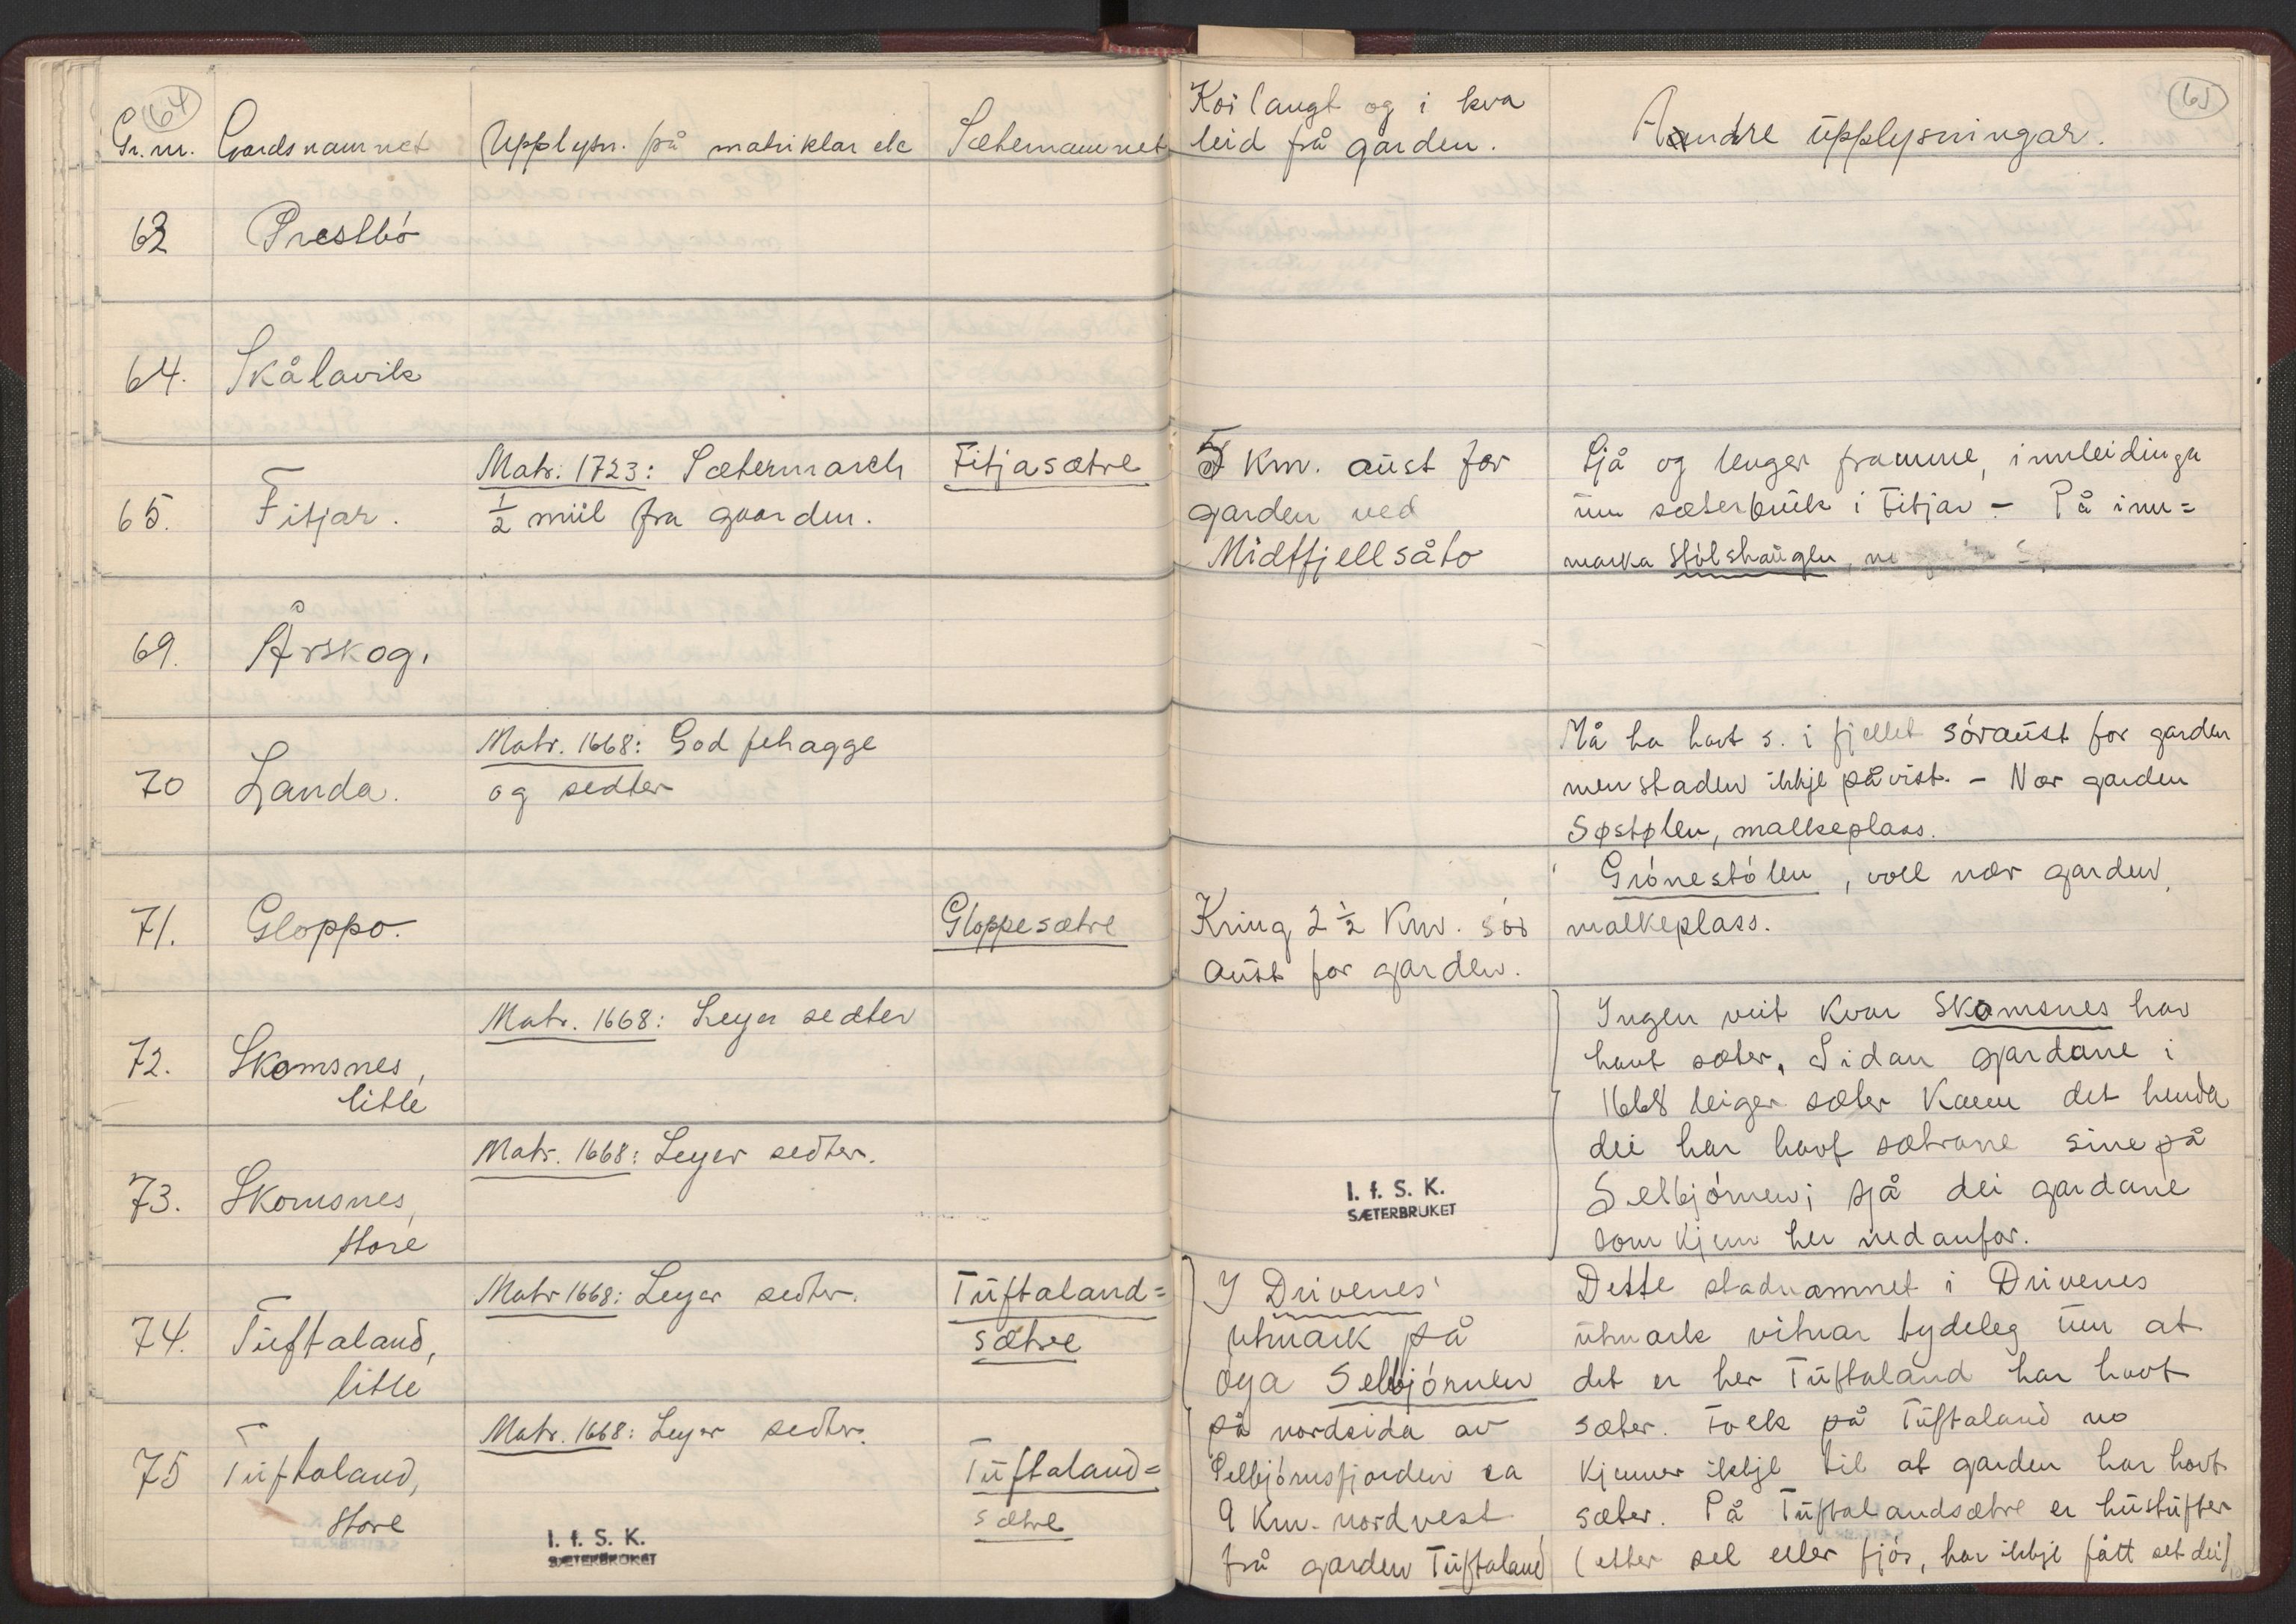 64
Gr.nr. Gardsnamnet Upplysn. på matriklar etc Sæternamnet
63 Prestbó
64. Skålavik
65. Fitjar.
Matr. 1723: Sætermarch
½ miil fra gaarden.
Fitjasætre
69. Årskog.
70 Landa.
Matr. 1668: God fehagge
og sedter
71. Gloppo.
Gloppesætre
72. Skomsnes,
litle
Matr. 1668: Leyer sedter
73. Skomsnes,
store
Matr. 1668: Leyer sedter.
74. Tuftaland,
litle
Matr 1668: Leyer sedter.
Tuftaland=
sætre
75 Tuftaland,
store
Matr. 1668: Leyer sedter.
Tuftaland=
sætre
I. f. S. K.
SÆTERBRUKET
65
Kor langt og i kva
leid frå garden.
Andre upplysningar.
5 km. aust for
garden ved
Midtfjellsåto
Sjå og lenger framme, innleidinga
um sæterbruk i Fitjar - På inn=
marka Stólshaugen,
Må ha havt s. i fjellet sóraust for garden
men staden ikkje påvist. - Nær garden
Søstølen, malkeplass.
Kring 2 ½ km. sór
aust for garden.
Grónestólen, voll nær garden,
malkeplass.
Ingen veit kvar Skomsnes har
havt sæter. Sidan gardane i
1668 leiger sæter kann det henda
dei har havt sætrane sine på
Selbjórnen; sjå dei gardane
som kjem her nedanfor.
I. f. S. K.
SÆTERBRUKET
I Drivenes'
utmark på
óya Selbjórnen
på nordsida av
Selbjórnsfjorden ca
9 km. nordvest
frå garden Tuftaland
Dette stadnamnet i Drivenes
utmark vitnar tydeleg um at
det er her Tuftaland har havt
sæter. Folk på Tuftaland no
kjenner ikkje til at garden har havt
sæter. På Tuftalandsætre er hustufter
(etter sel eller fjós, har ikkje fått set dei)